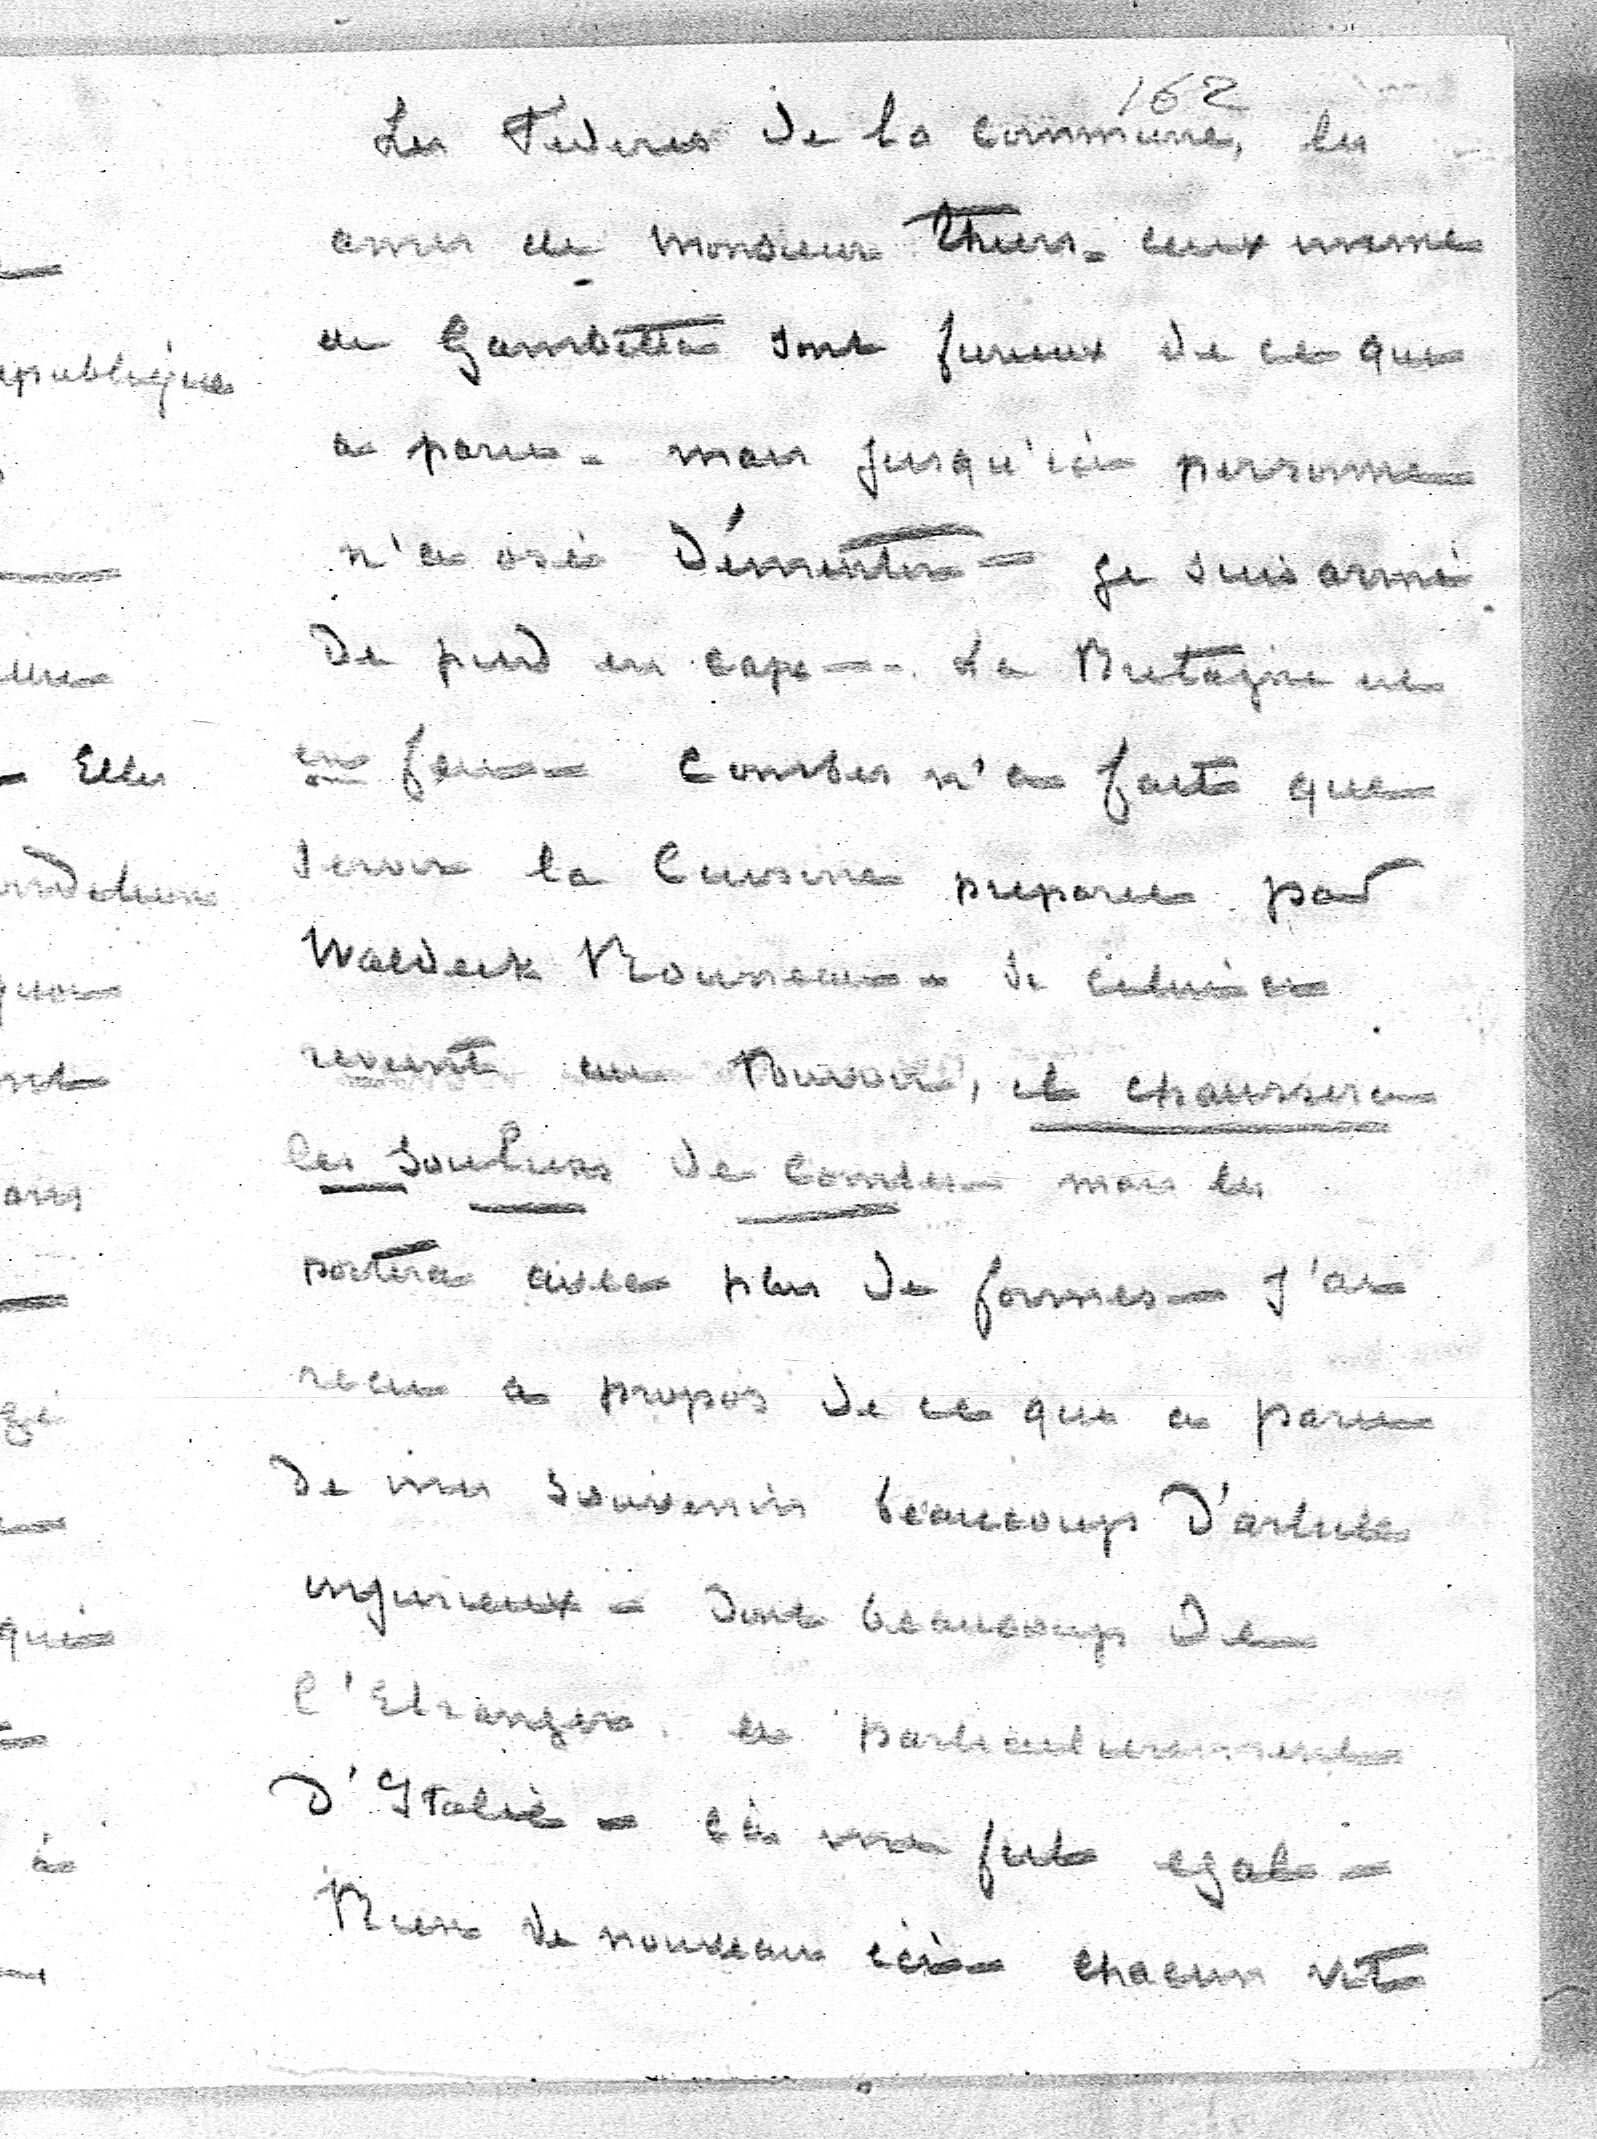 162
Les Federes de la Commune, les
amis de Monsieur Thiers - ceux meme
de Gambetta sont furieux de ce que
a paru - mais jusqu'ici personne
n'a osé Démentir - je suis armé
De pied en cape -- La Bretagne est
en feu - Combes n'a fait que
servir la Cuisine preparee par
Waldeck Rousseau - si celui ci
revient au Pouvoir, il chaussera
les souliers de Combes mais les
portera avec plus de formes - J'ai
recu a propos de ce que a paru
De mes souvenirs beaucoup D'articles
injurieux - dont beaucoup De
l'Etranger. et particulierement
D'Italie - cà me fut egal -
Rien de nouveau ici - chacun vit
epublique
Elles
quoi
ais
qui
à